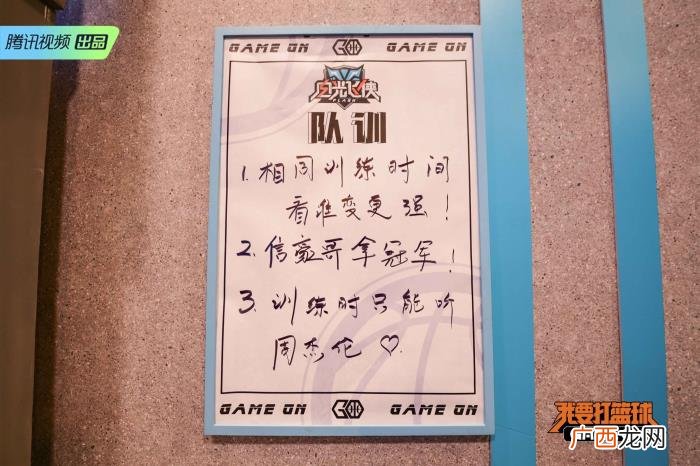 腾讯视频 出品
GAME ON GAME ON
日光飞侠
FLASH
队训
1. 相同训练时间
看谁变更强！
2. 信豪哥拿冠军！
3. 训练时只能听
周杰伦 ♡.
GAME ON GAME ON
我要打篮球
广西龙网